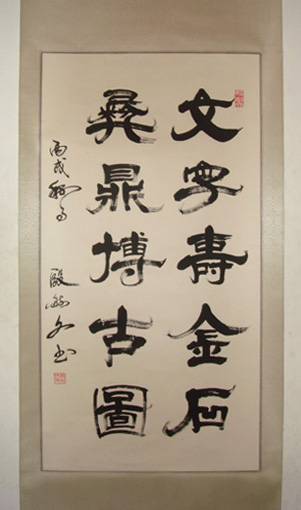 文字壽金石
彝鼎博古圖
丙戌秋月
殷
书